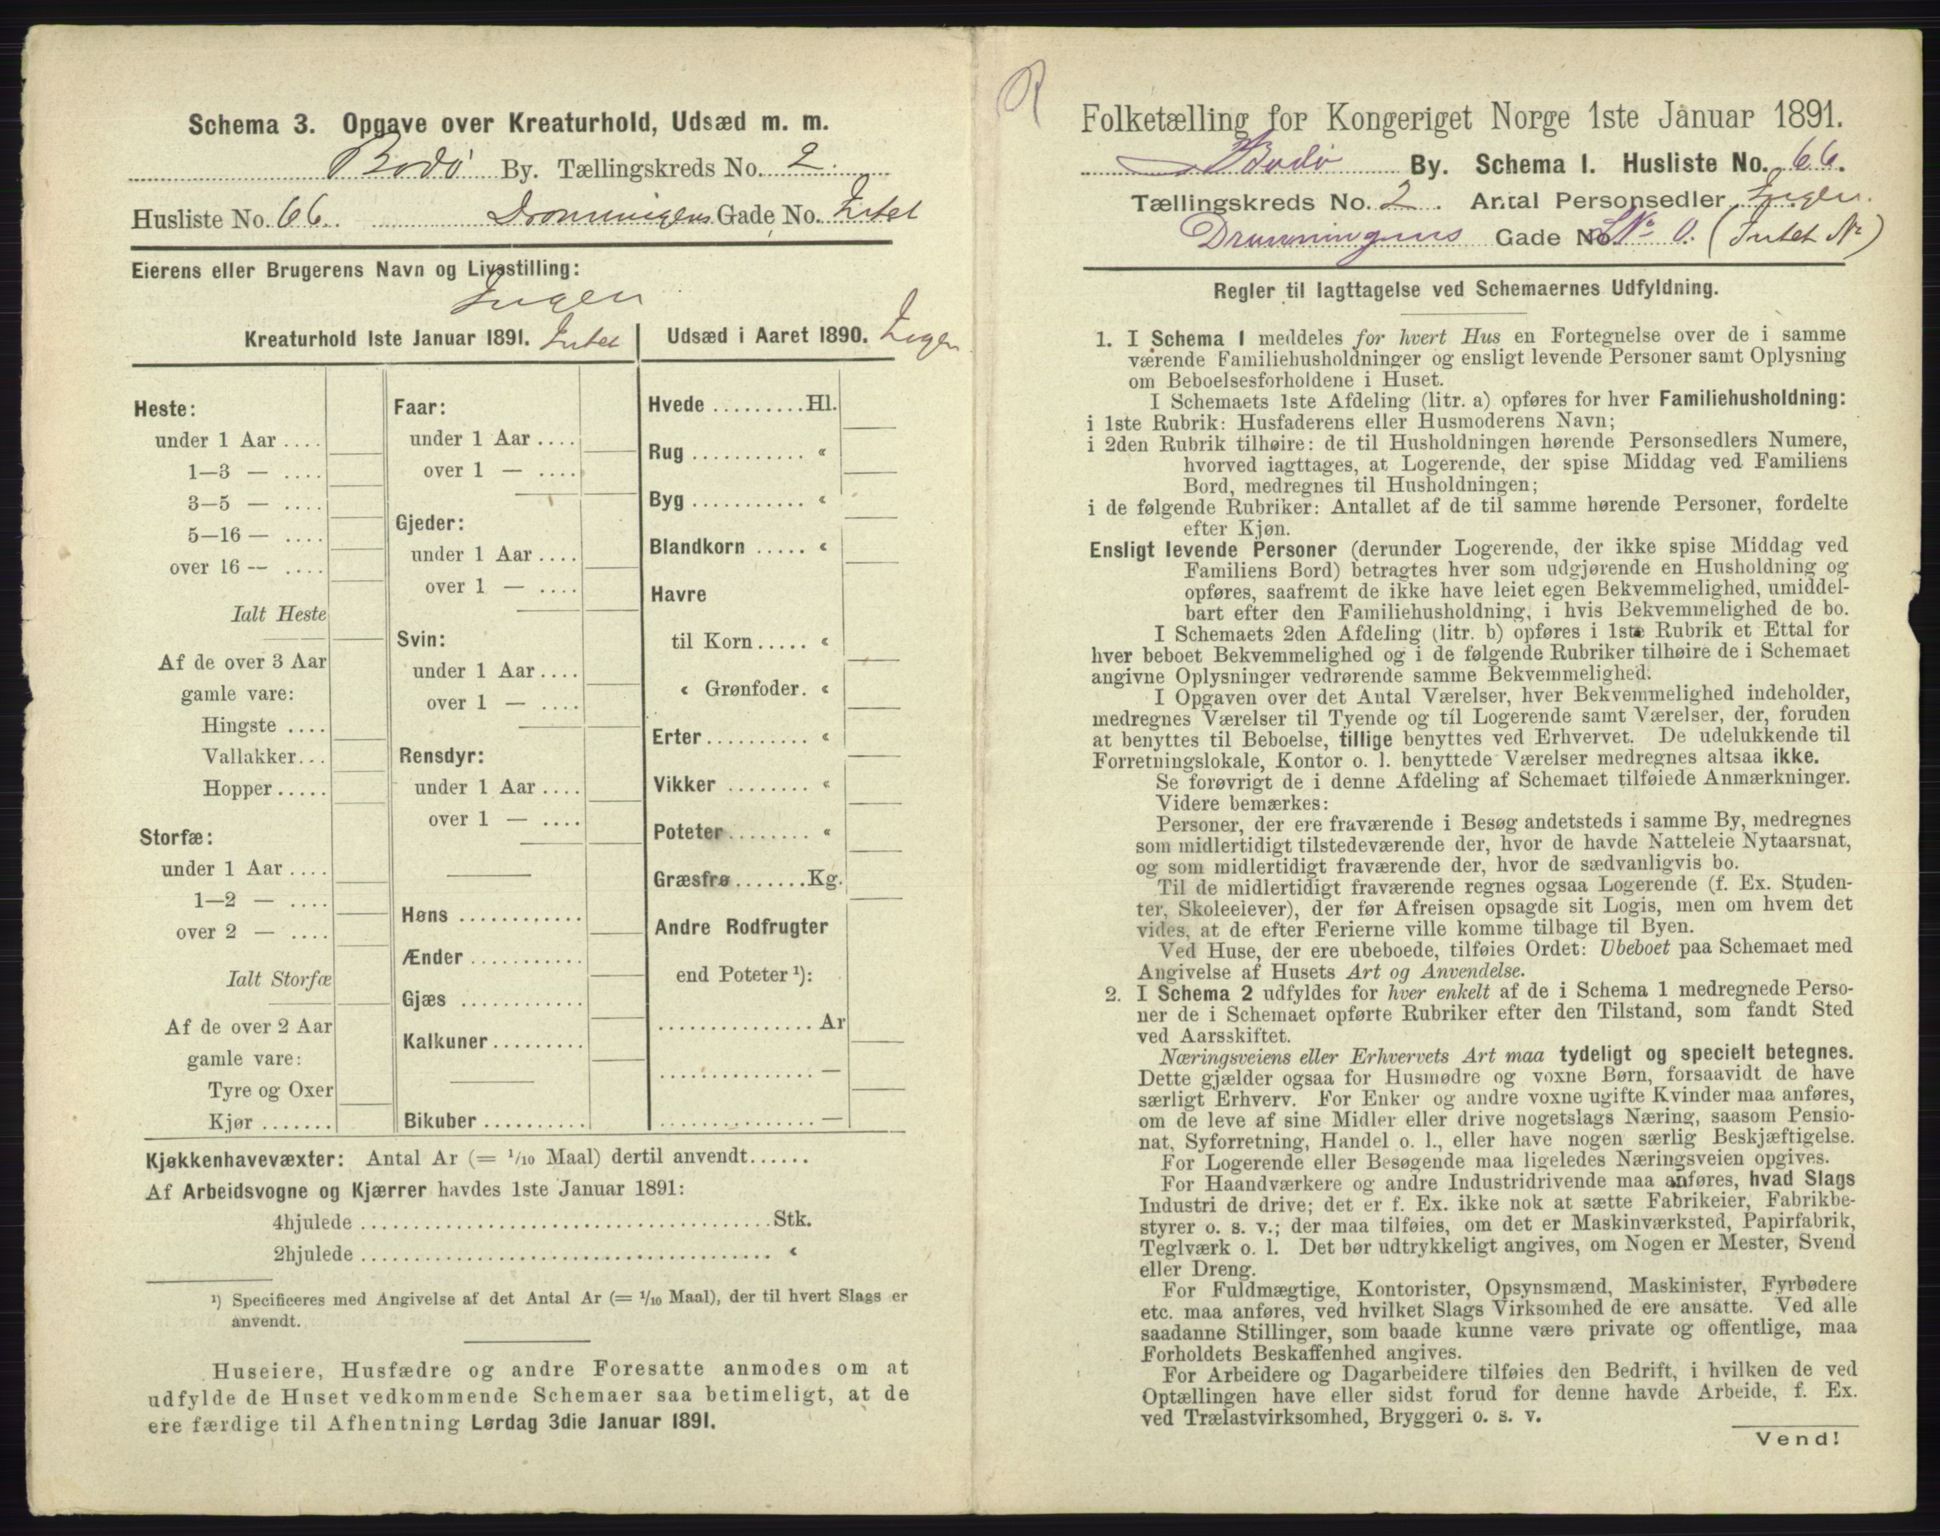 Schema 3. Opgave over Kreaturhold, Udsæd m. m.
Bodø By. Tællingskreds No. 2.
Husliste No. 66. Dronningens Gade, No. Intet
Eierens eller Brugerens Navn og Livsstilling:
Ingen
Kreaturhold 1ste Januar 1891. Intet
Heste:
under 1 Aar ....
1—3 — ....
3—5 — ....
5—16 — ....
over 16 — ....
Ialt Heste
Af de over 3 Aar
gamle vare:
Hingste ....
Vallakker...
Hopper.....
Storfæ:
under 1 Aar ....
1—2 — ....
over 2 — ....
Ialt Storfæ
Af de over 2 Aar
gamle vare:
Tyre og Oxer
Kjør .......
Faar:
under 1 Aar ....
over 1 — ....
Gjeder:
under 1 Aar ....
over 1 — ....
Svin:
under 1 Aar ....
over 1 — ....
Rensdyr:
under 1 Aar ....
over 1 — ....
Høns ............
Ænder ...........
Gjæs ............
Kalkuner.........
Bikuber ..........
Udsæd i Aaret 1890. Ingen
Hvede .........Hl.
Rug ........... «
Byg ........... «
Blandkorn ..... «
Havre
til Korn..... «
« Grønfoder. «
Erter.......... «
Vikker ........ «
Poteter........ «
Græsfrø.......Kg.
Andre Rodfrugter
end Poteter ¹):
............... Ar
............... —
............... —
Kjøkkenhavevæxter: Antal Ar (= 1/10 Maal) dertil anvendt......
Af Arbeidsvogne og Kjærrer havdes 1ste Januar 1891:
4hjulede ......................................Stk.
2hjulede ...................................... «
¹) Specificeres med Angivelse af det Antal Ar (= 1/10 Maal), der til hvert Slags er
anvendt.
Huseiere, Husfædre og andre Foresatte anmodes om at
udfylde de Huset vedkommende Schemaer saa betimeligt, at de
ere færdige til Afhentning Lørdag 3die Januar 1891.
R
Folketælling for Kongeriget Norge 1ste Januar 1891.
Bodø By. Schema I. Husliste No. 66.
Tællingskreds No. 2. Antal Personsedler Ingen.
Dronningens Gade No. LNo 0. (Intet No)
Regler til Iagttagelse ved Schemaernes Udfyldning.
1. I Schema 1 meddeles for hvert Hus en Fortegnelse over de i samme
værende Familiehusholdninger og ensligt levende Personer samt Oplysning
om Beboelsesforholdene i Huset.
I Schemaets 1ste Afdeling (litr. a) opføres for hver Familiehusholdning:
i 1ste Rubrik: Husfaderens eller Husmoderens Navn;
i 2den Rubrik tilhøire: de til Husholdningen hørende Personsedlers Numere,
hvorved iagttages, at Logerende, der spise Middag ved Familiens
Bord, medregnes til Husholdningen;
i de følgende Rubriker: Antallet af de til samme hørende Personer, fordelte
efter Kjøn.
Ensligt levende Personer (derunder Logerende, der ikke spise Middag ved
Familiens Bord) betragtes hver som udgjørende en Husholdning og
opføres, saafremt de ikke have leiet egen Bekvemmelighed, umiddel-
bart efter den Familiehusholdning, i hvis Bekvemmelighed de bo.
I Schemaets 2den Afdeling (litr. b) opføres i 1ste Rubrik et Ettal for
hver beboet Bekvemmelighed og i de følgende Rubriker tilhøire de i Schemaet
angivne Oplysninger vedrørende samme Bekvemmelighed.
I Opgaven over det Antal Værelser, hver Bekvemmelighed indeholder,
medregnes Værelser til Tyende og til Logerende samt Værelser, der, foruden
at benyttes til Beboelse, tillige benyttes ved Erhvervet. De udelukkende til
Forretningslokale, Kontor o. l. benyttede Værelser medregnes altsaa ikke.
Se forøvrigt de i denne Afdeling af Schemaet tilføiede Anmærkninger.
Videre bemærkes:
Personer, der ere fraværende i Besøg andetsteds i samme By, medregnes
som midlertidigt tilstedeværende der, hvor de havde Natteleie Nytaarsnat,
og som midlertidigt fraværende der, hvor de sædvanligvis bo.
Til de midlertidigt fraværende regnes ogsaa Logerende (f. Ex. Studen-
ter, Skoleelever), der før Afreisen opsagde sit Logis, men om hvem det
vides, at de efter Ferierne ville komme tilbage til Byen.
Ved Huse, der ere ubeboede, tilføies Ordet: Ubeboet paa Schemaet med
Angivelse af Husets Art og Anvendelse.
2. I Schema 2 udfyldes for hver enkelt af de i Schema 1 medregnede Perso-
ner de i Schemaet opførte Rubriker efter den Tilstand, som fandt Sted
ved Aarsskiftet.
Næringsveiens eller Erhvervets Art maa tydeligt og specielt betegnes.
Dette gjælder ogsaa for Husmødre og voxne Børn, forsaavidt de have
særligt Erhverv. For Enker og andre voxne ugifte Kvinder maa anføres,
om de leve af sine Midler eller drive nogetslags Næring, saasom Pensio-
nat, Syforretning, Handel o. l., eller have nogen særlig Beskjæftigelse.
For Logerende eller Besøgende maa ligeledes Næringsveien opgives.
For Haandværkere og andre Industridrivende maa anføres, hvad Slags
Industri de drive; det er f. Ex. ikke nok at sætte Fabrikeier, Fabrikbe-
styrer o. s. v.; der maa tilføies, om det er Maskinværksted, Papirfabrik,
Teglværk o. l. Det bør udtrykkeligt angives, om Nogen er Mester, Svend
eller Dreng.
For Fuldmægtige, Kontorister, Opsynsmænd, Maskinister, Fyrbødere
etc. maa anføres, ved hvilket Slags Virksomhed de ere ansatte. Ved alle
saadanne Stillinger, som baade kunne være private og offentlige, maa
Forholdets Beskaffenhed angives.
For Arbeidere og Dagarbeidere tilføies den Bedrift, i hvilken de ved
Optællingen have eller sidst forud for denne havde Arbeide, f. Ex.
ved Trælastvirksomhed, Bryggeri o. s. v.
Vend!